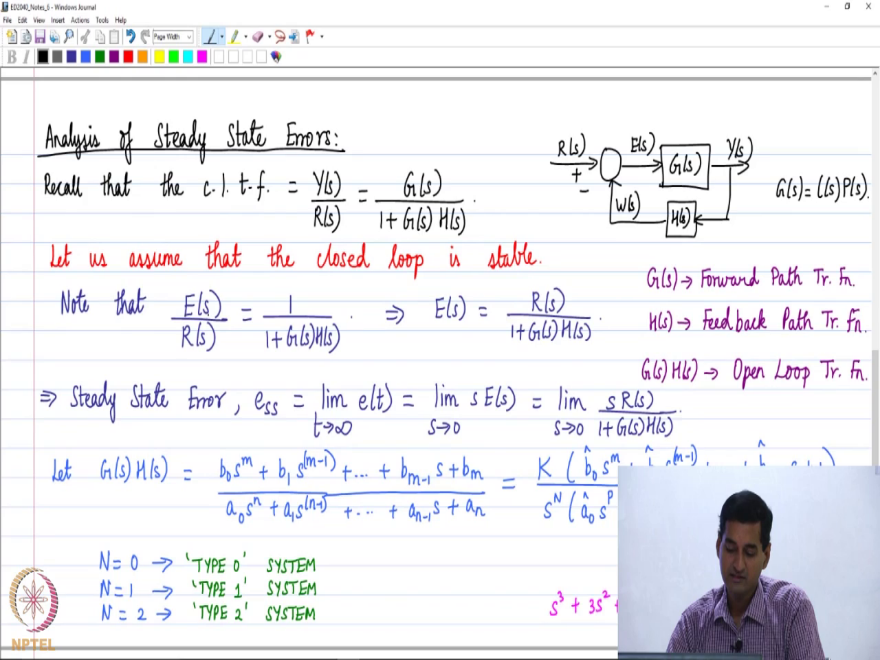 ED2040_Notes_6 - Windows Journal
File Edit View Insert Actions Tools Help
Page Width
B I
Analysis of Steady State Errors:
Recall that the c.l.t.f. = Y(s)/R(s) = G(s)/(1+G(s)H(s)).
R(s) + - E(s) G(s) Y(s)
W(s) H(s)
G(s)=C(s)P(s).
Let us assume that the closed loop is stable.
G(s)→ Forward Path Tr. Fn.
Note that E(s)/R(s) = 1/(1+G(s)H(s)). ⇒ E(s) = R(s)/(1+G(s)H(s)).
H(s)→ Feedback Path Tr. Fn.
G(s)H(s)→ Open Loop Tr. Fn.
⇒ Steady State Error, e_ss = lim t→∞ e(t) = lim s→0 sE(s) = lim s→0 sR(s)/(1+G(s)H(s)).
Let G(s)H(s) = (b₀s^m + b₁s^(m-1) +...+ b_{m-1}s + b_m)/(a₀s^n + a₁s^(n-1) +...+ a_{n-1}s + a_n) = K(b̂₀s^m + s^(m-1) / s^N(â₀s^P
N=0 → 'TYPE 0' SYSTEM
N=1 → 'TYPE 1' SYSTEM
N=2 → 'TYPE 2' SYSTEM
s³ + 3s² +
NPTEL